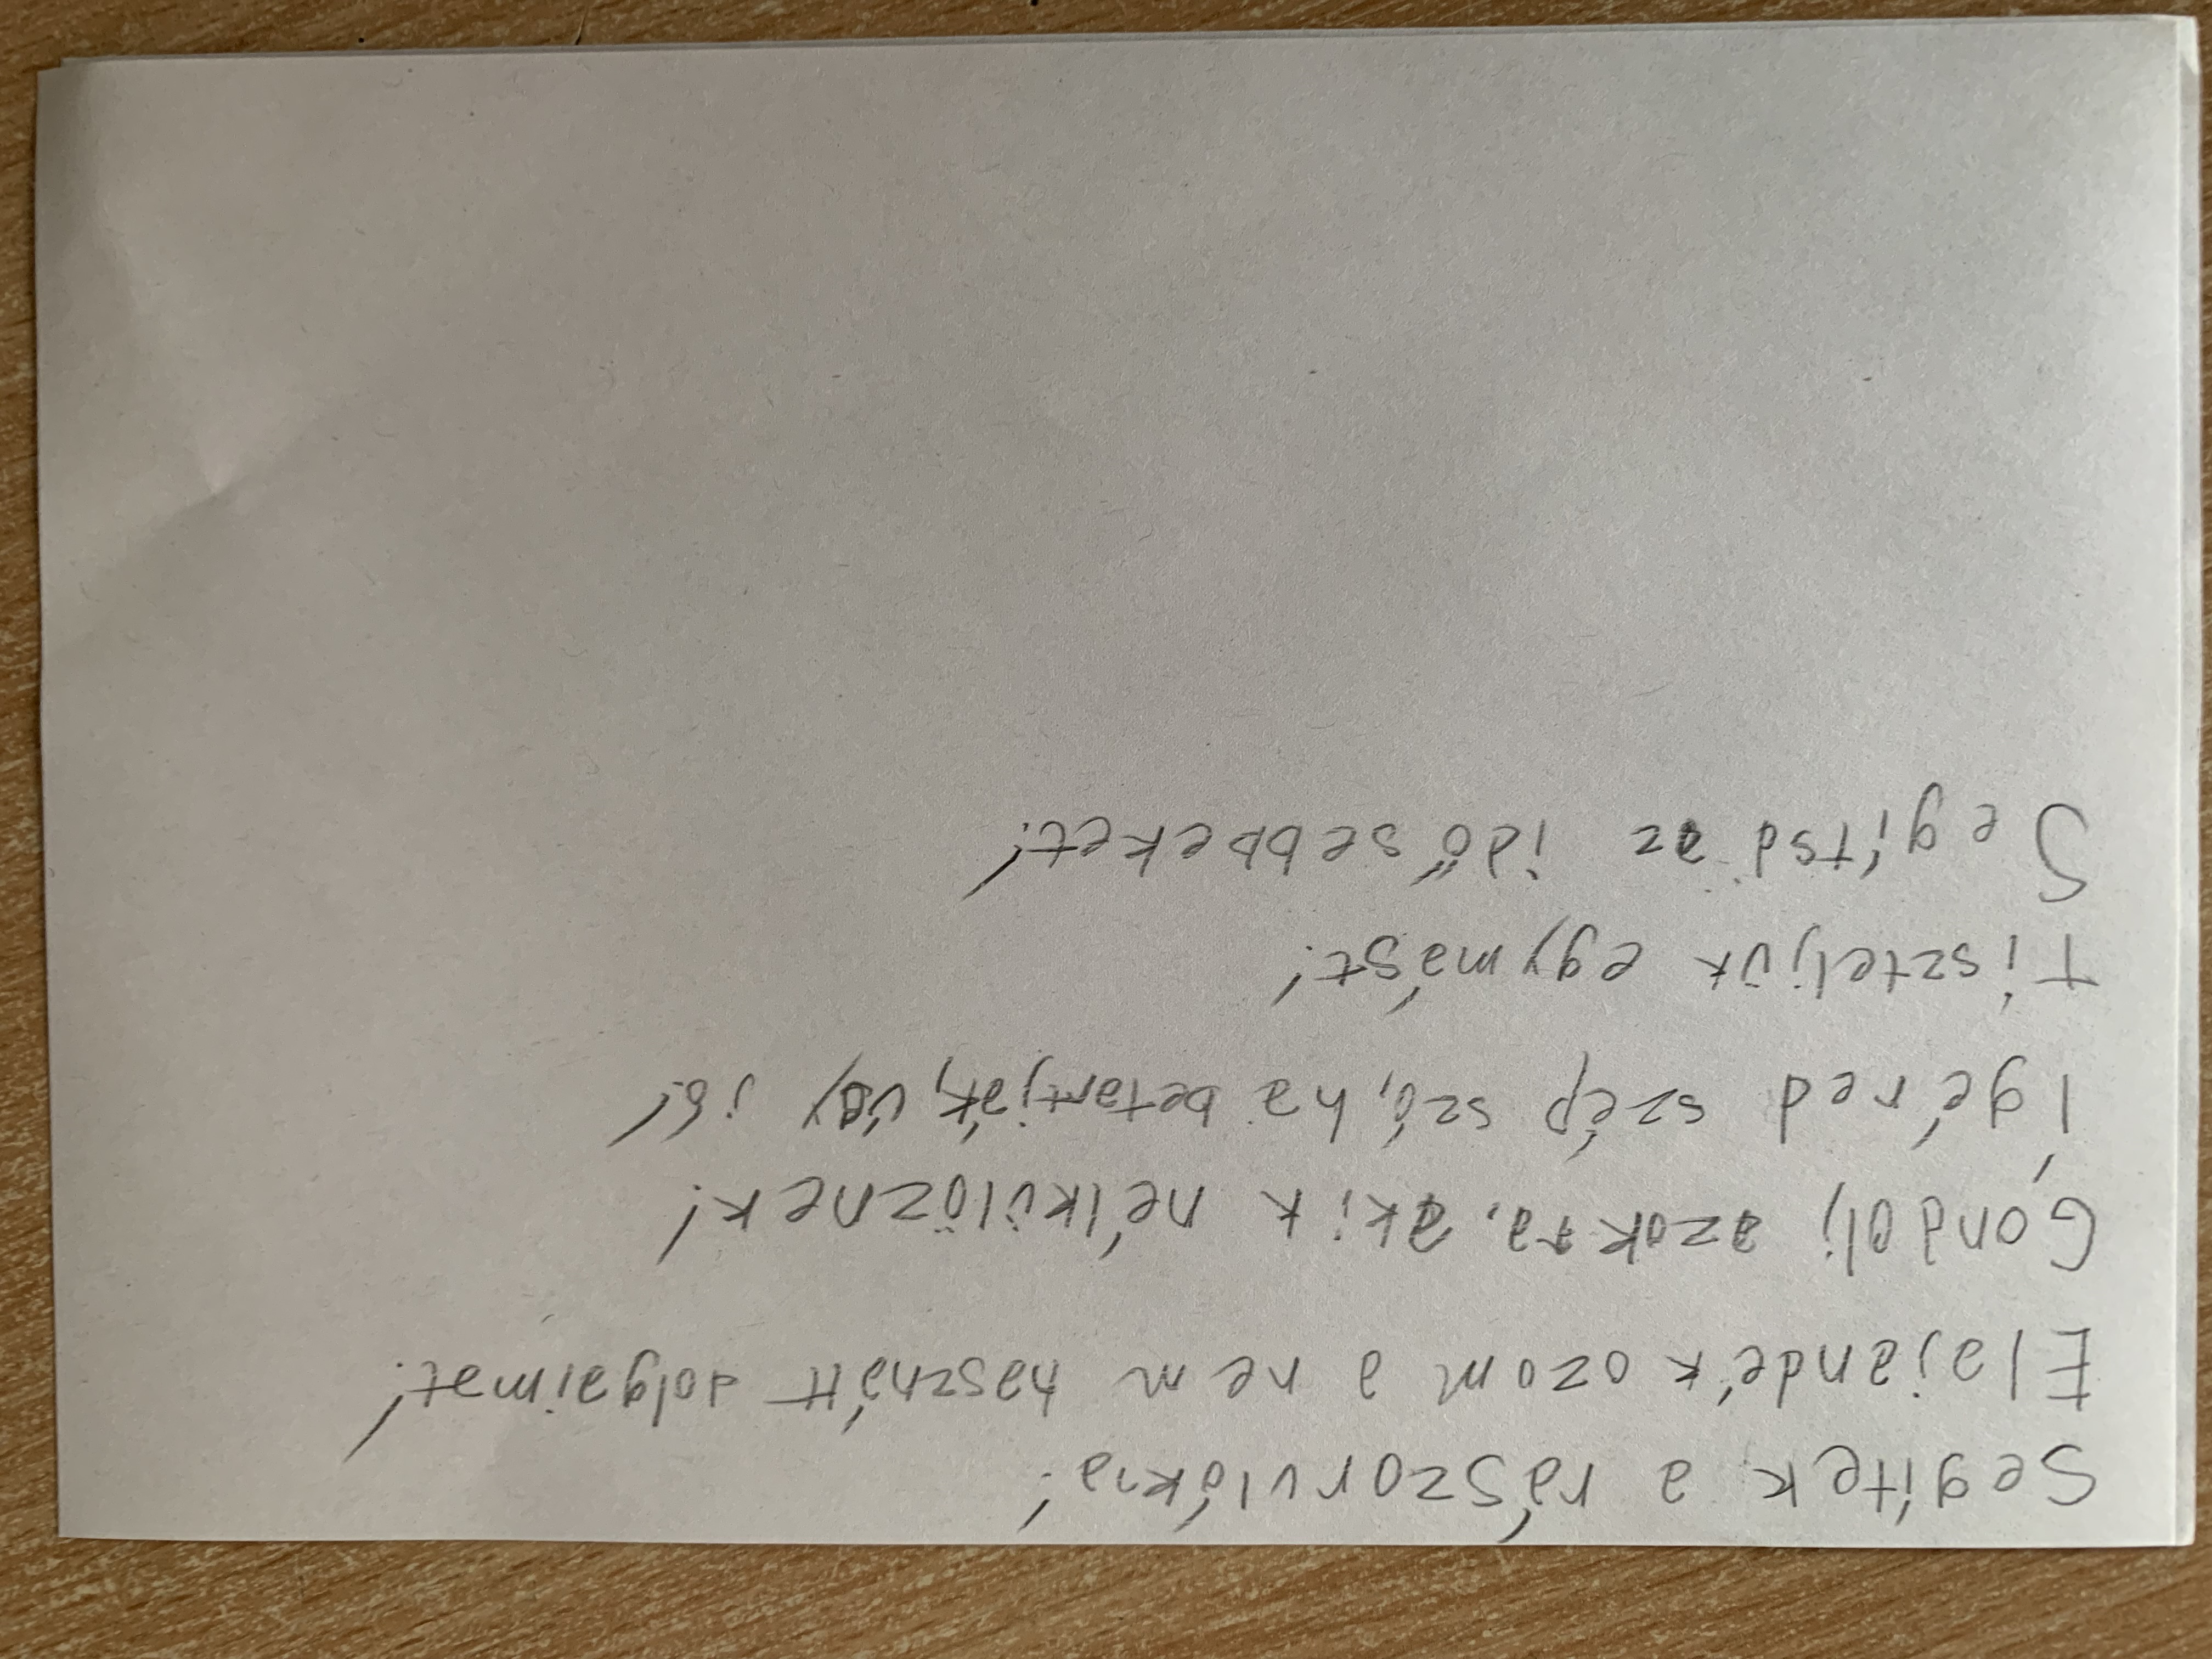 Segítek a rászorulókna!
Elajándékozom a nem hasznátt dolgaimat!
Gondolj azokra, akik nélkülöznek!
Ígéred szép szó, ha betartják, úgy jó!
Tiszteljük egymást!
Segítsd az idősebbeket!